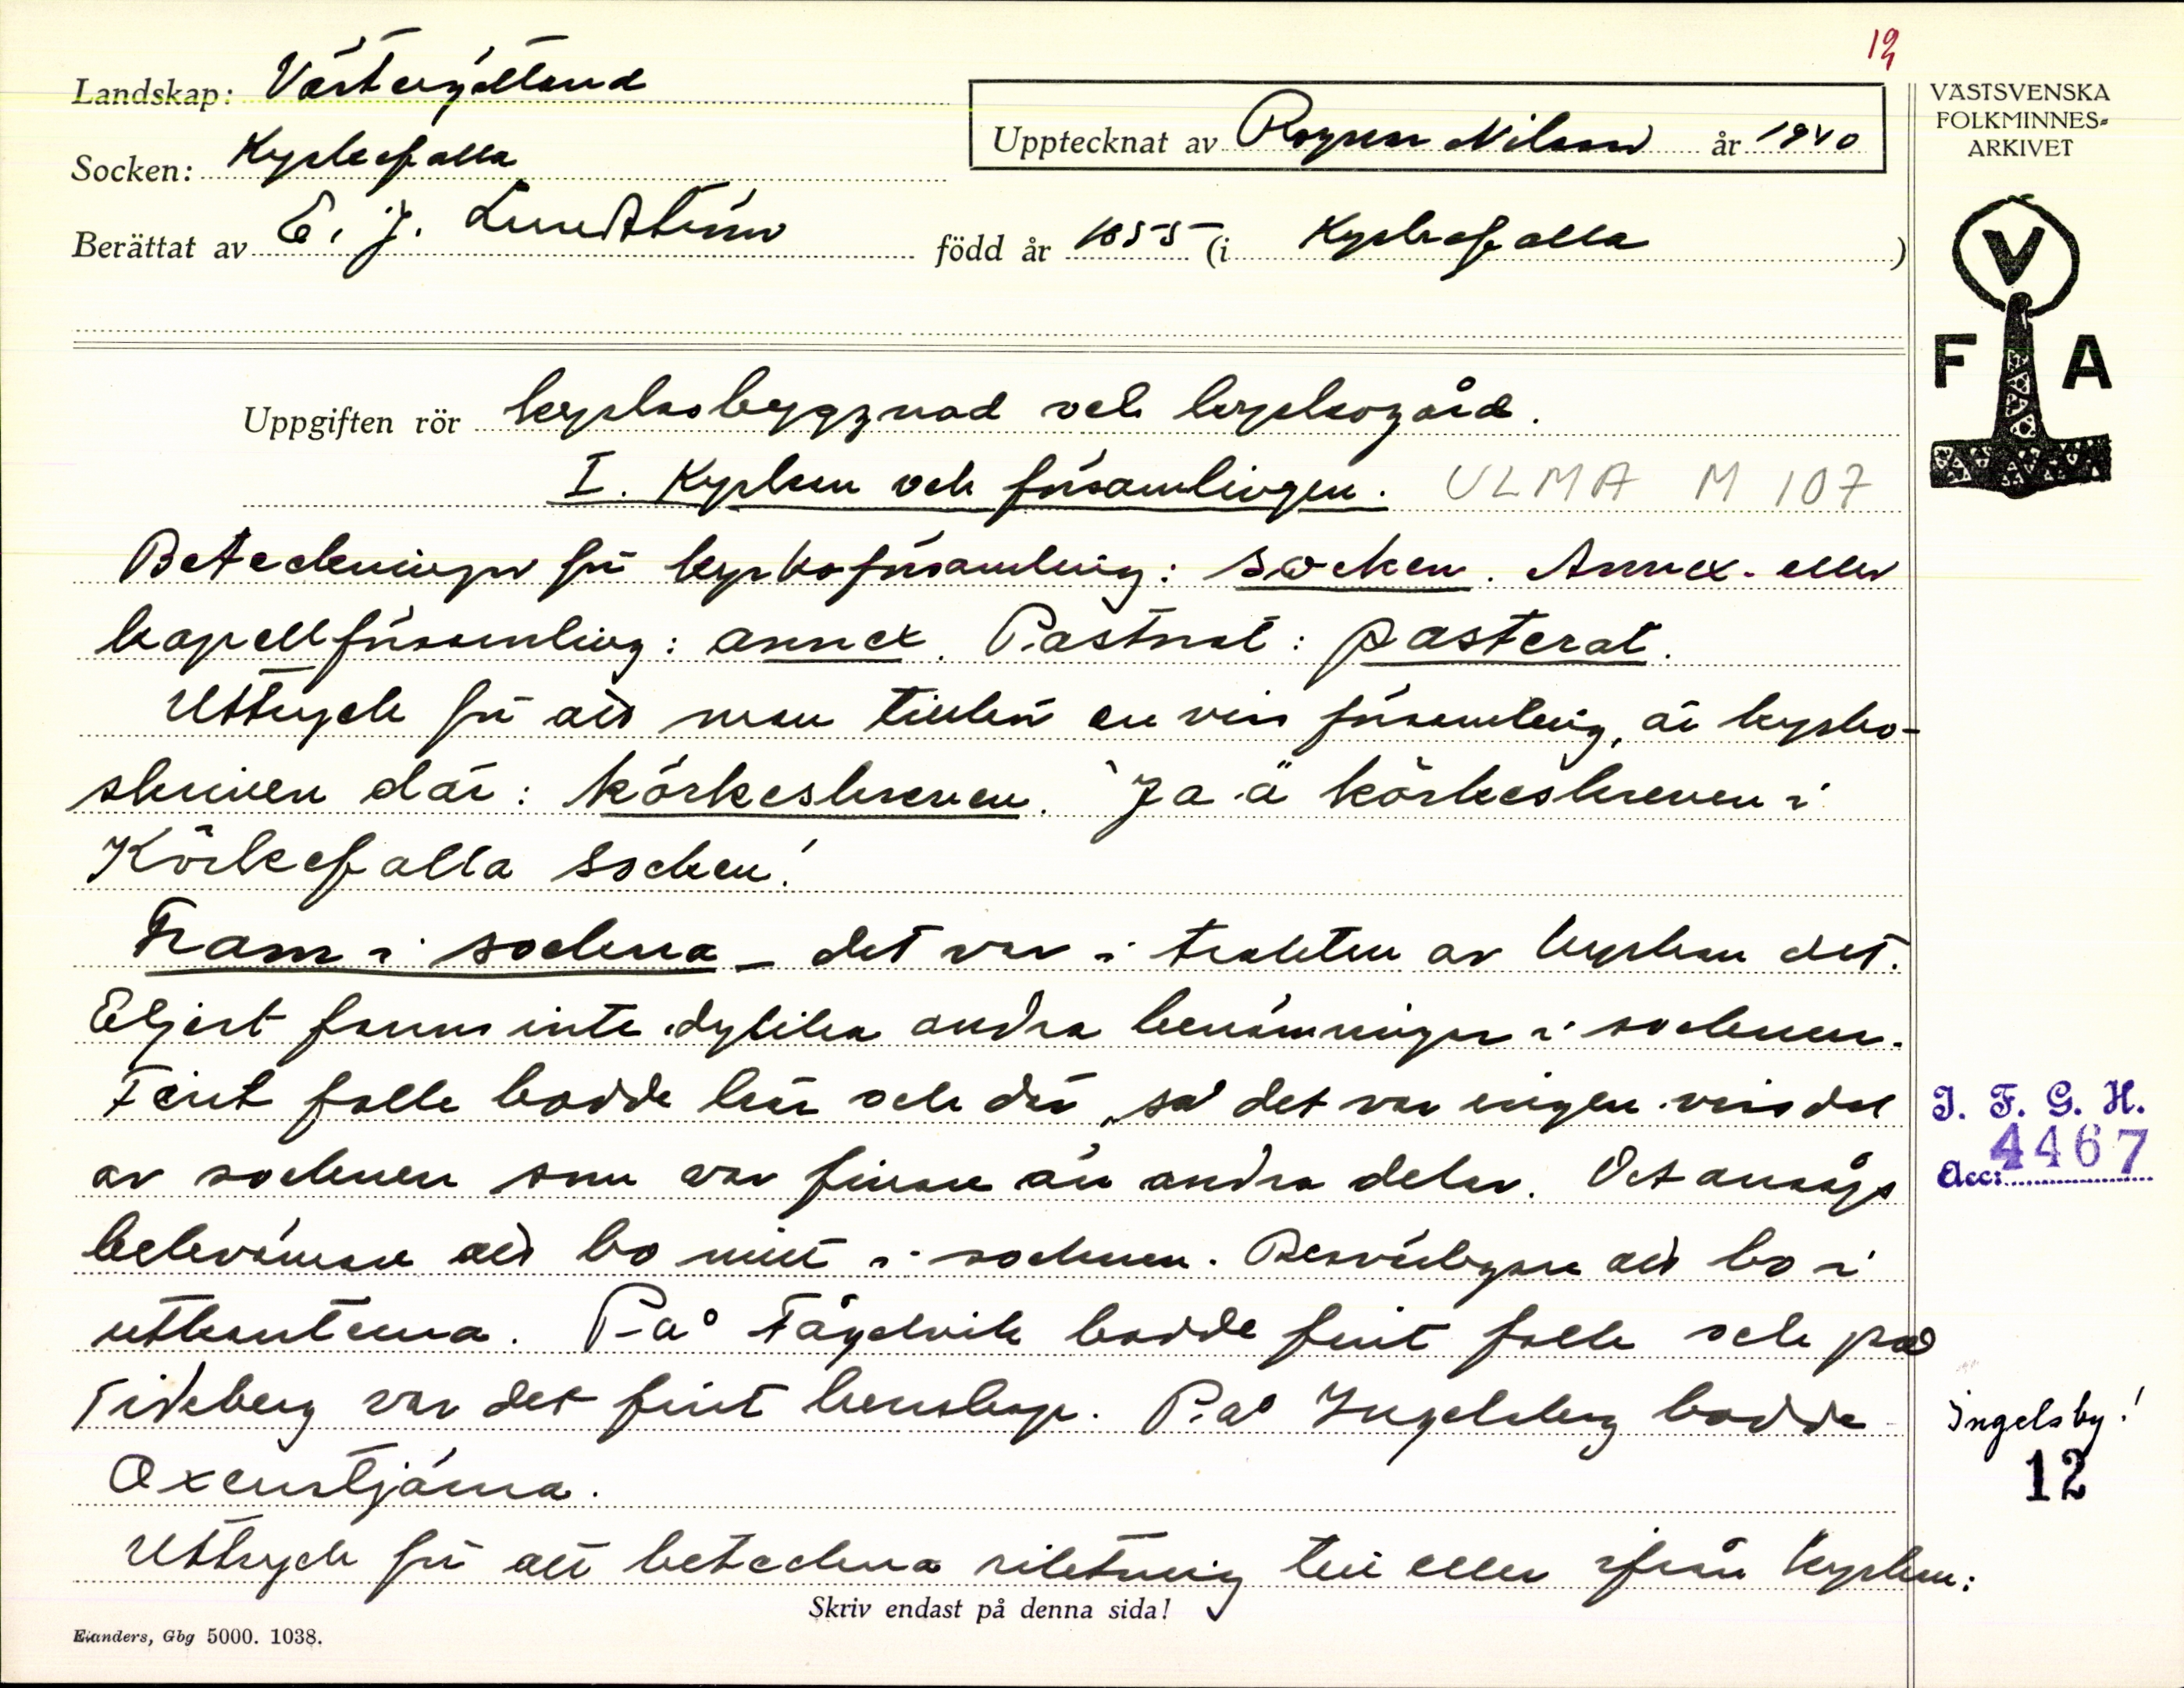 19
Landskap: Västergötland
Upptecknat av Ragnar Nilsson år 1940
VÄSTSVENSKA
FOLKMINNES-
ARKIVET
Socken: Kyrkefalla
Berättat av E. J. Lundström född år 1855 (i Kyrkefalla)
V
F A
Uppgiften rör kyrkobyggnad och kyrkogård.
I. Kyrkan och församlingen. ULMA M 107
Beteckningar för kyrkoförsamling: socken. Annex- eller
kapellförsamling: annex. Pastorat: pasterat.
Uttryck för att man tillhör en viss församling, är kyrko-
skriven där: körkeskreven. "Ja ä körkeskreven i
Körkefalla socken."
Fram i sockna – det var i trakten av kyrkan det.
Eljest fanns inte dylika andra benämningar i socknen.
Fint folk bodde här och där, så det var ingen viss del
av socknen som var finare än andra delar. Det ansågs
bekvämare att bo mitt i socknen. Besvärligare att bo i
utkanterna. På Fågelvik bodde fint folk och på
Tideberg var det fint herrskap. På Ingelsberg bodde
Oxenstjärna.
Uttryck för att beteckna riktning till eller ifrån kyrkan:
I. F. G. H.
Acc: 4467
Ingelsby!
12
Skriv endast på denna sida!
Elanders, Gbg 5000. 1038.